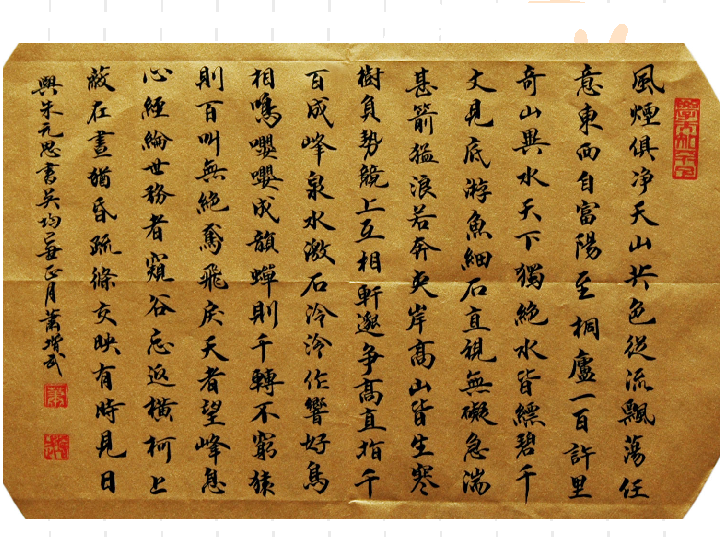 風煙俱淨天山共色從流飄蕩任
意東西自富陽至桐廬一百許里
奇山異水天下獨絕水皆縹碧千
丈見底游魚細石直視無礙急湍
甚箭猛浪若奔夾岸高山皆生寒
樹負勢競上互相軒邈爭高直指千
百成峰泉水激石泠泠作響好鳥
相鳴嚶嚶成韻蟬則千轉不窮猿
則百叫無絕鳶飛戾天者望峰息
心經綸世務者窺谷忘返橫柯上
蔽在晝猶昏疏條交映有時見日
與朱元思書吳均 正月蕭